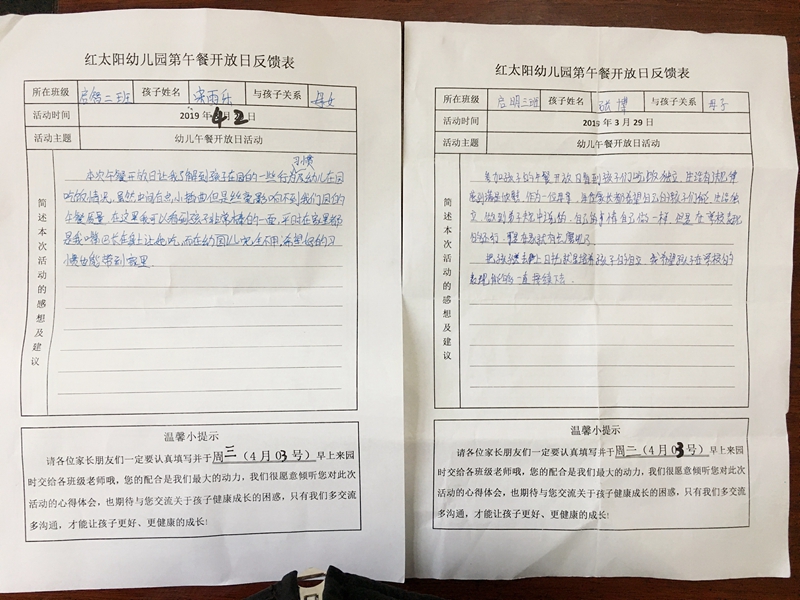 红太阳幼儿园第午餐开放日反馈表
所在班级 启智二班 孩子姓名 雨乐 与孩子关系 母女
活动时间 2019年4月2日
活动主题 幼儿午餐开放日活动
简述本次活动的感想及建议
习惯
本次午餐开放日让我了解到孩子在园的一些行为及幼儿在园
吃饭情况,虽然中间有点小插曲但是丝毫影响不到我们园的
午餐质量,在这里我可以看到孩子非常棒的一面,平时在家里都
是我嘴巴长在身上让她吃,而在幼园儿完全不用,希望好的习
惯也能带到家里.
温馨小提示
请各位家长朋友们一定要认真填写并于周三(4月03号)早上来园
时交给各班级老师哦,您的配合是我们最大的动力,我们很愿意倾听您对此次
活动的心得体会,也期待与您交流关于孩子健康成长的困惑,只有我们多交流
多沟通,才能让孩子更好、更健康的成长!
红太阳幼儿园第午餐开放日反馈表
所在班级 启明三班 孩子姓名 博 与孩子关系 母子
活动时间 2019年3月29日
活动主题 幼儿午餐开放日活动
简述本次活动的感想及建议
参加孩子的午餐开放日看到孩子们吃饭独立,生活有规律
感到满足他慰,作为一位母亲,每位家长都希望自己的孩子们能生活独
立,做到弟子规中说的,自己的事情自己做一样,但是在学校
的还行,
把孩子上日托就是培养孩子的独立,我希望孩子在学校的
表现能够一直持续下去.
温馨小提示
请各位家长朋友们一定要认真填写并于周三(4月03号)早上来园
时交给各班级老师哦,您的配合是我们最大的动力,我们很愿意倾听您对此次
活动的心得体会,也期待与您交流关于孩子健康成长的困惑,只有我们多交流
多沟通,才能让孩子更好、更健康的成长!